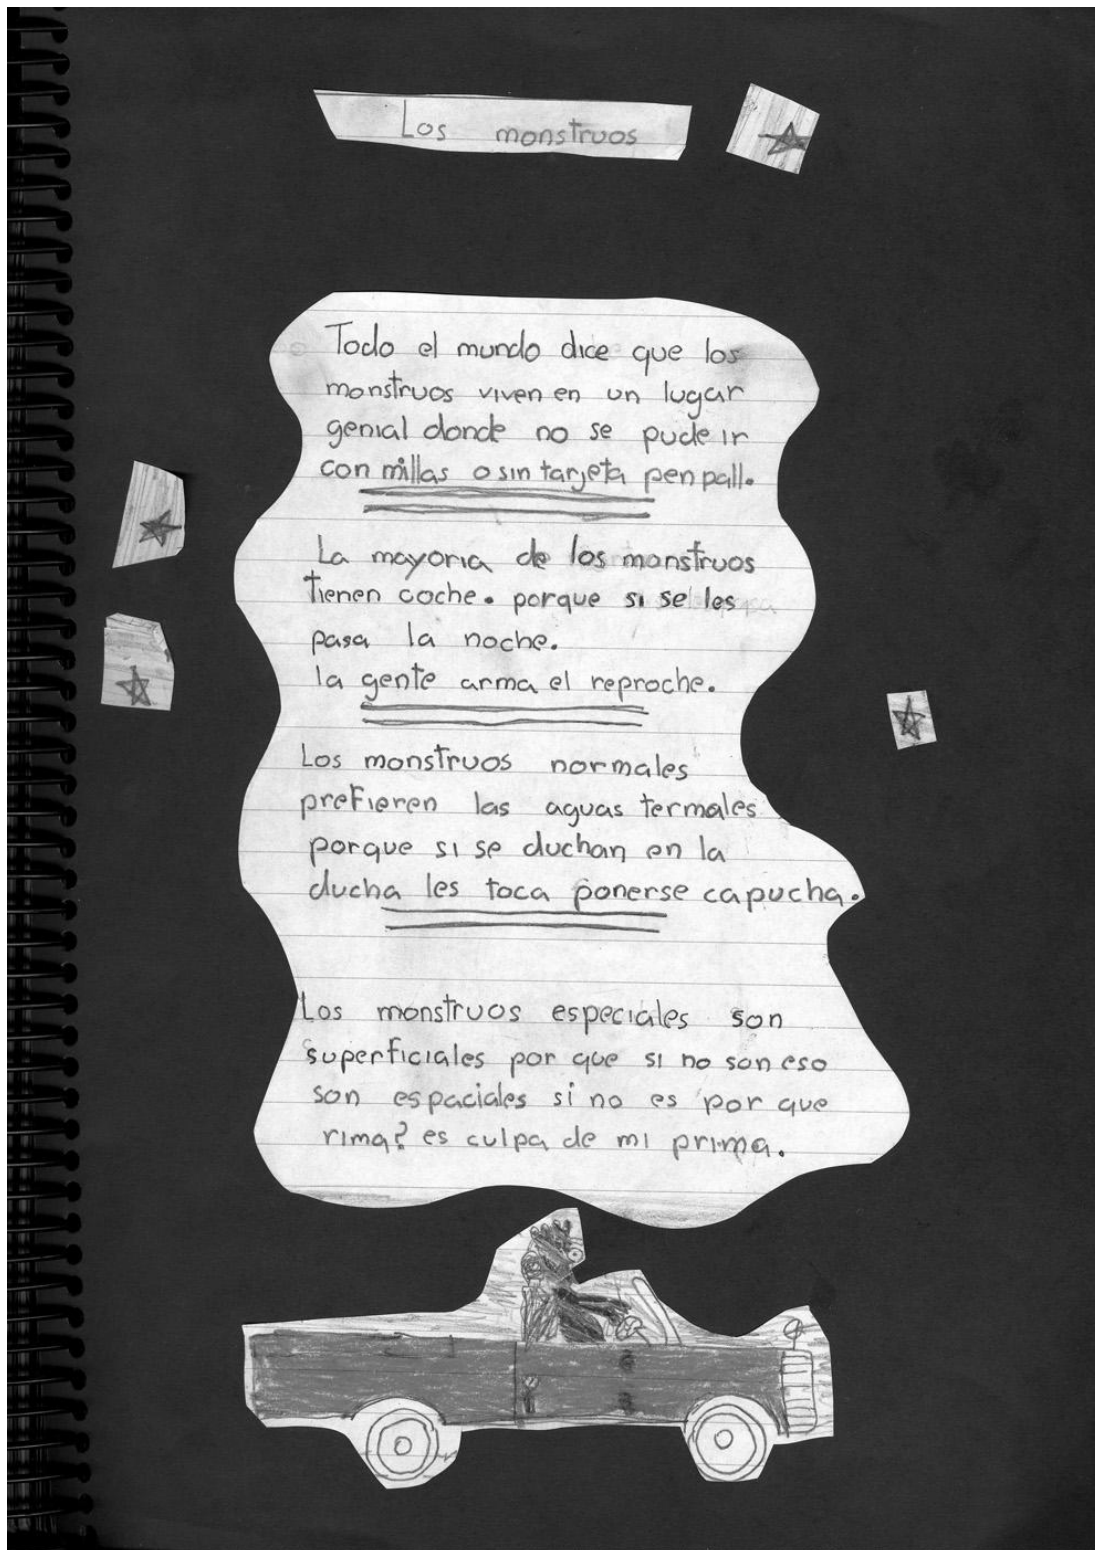 Los monstruos
Todo el mundo dice que los
monstruos viven en un lugar
genial donde no se pude ir
con millas o sin tarjeta pen pall.
La mayoria de los monstruos
tienen coche. porque si se les
pasa la noche.
la gente arma el reproche.
Los monstruos normales
prefieren las aguas termales
porque si se duchan en la
ducha les toca ponerse capucha.
Los monstruos especiales son
superficiales por que si no son eso
son espaciales si no es por que
rima? es culpa de mi prima.